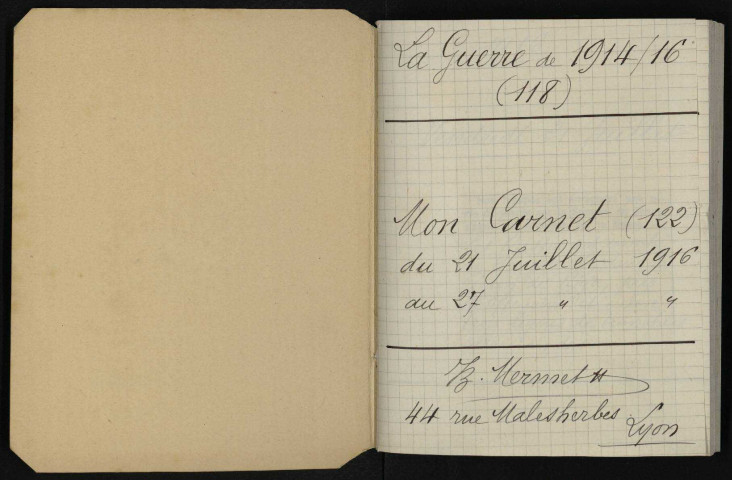 La Guerre de 1914/16
(118)
Mon Carnet (122)
du 21 Juillet 1916
au 27 " "
Mermet
44 rue Malesherbes
Lyon